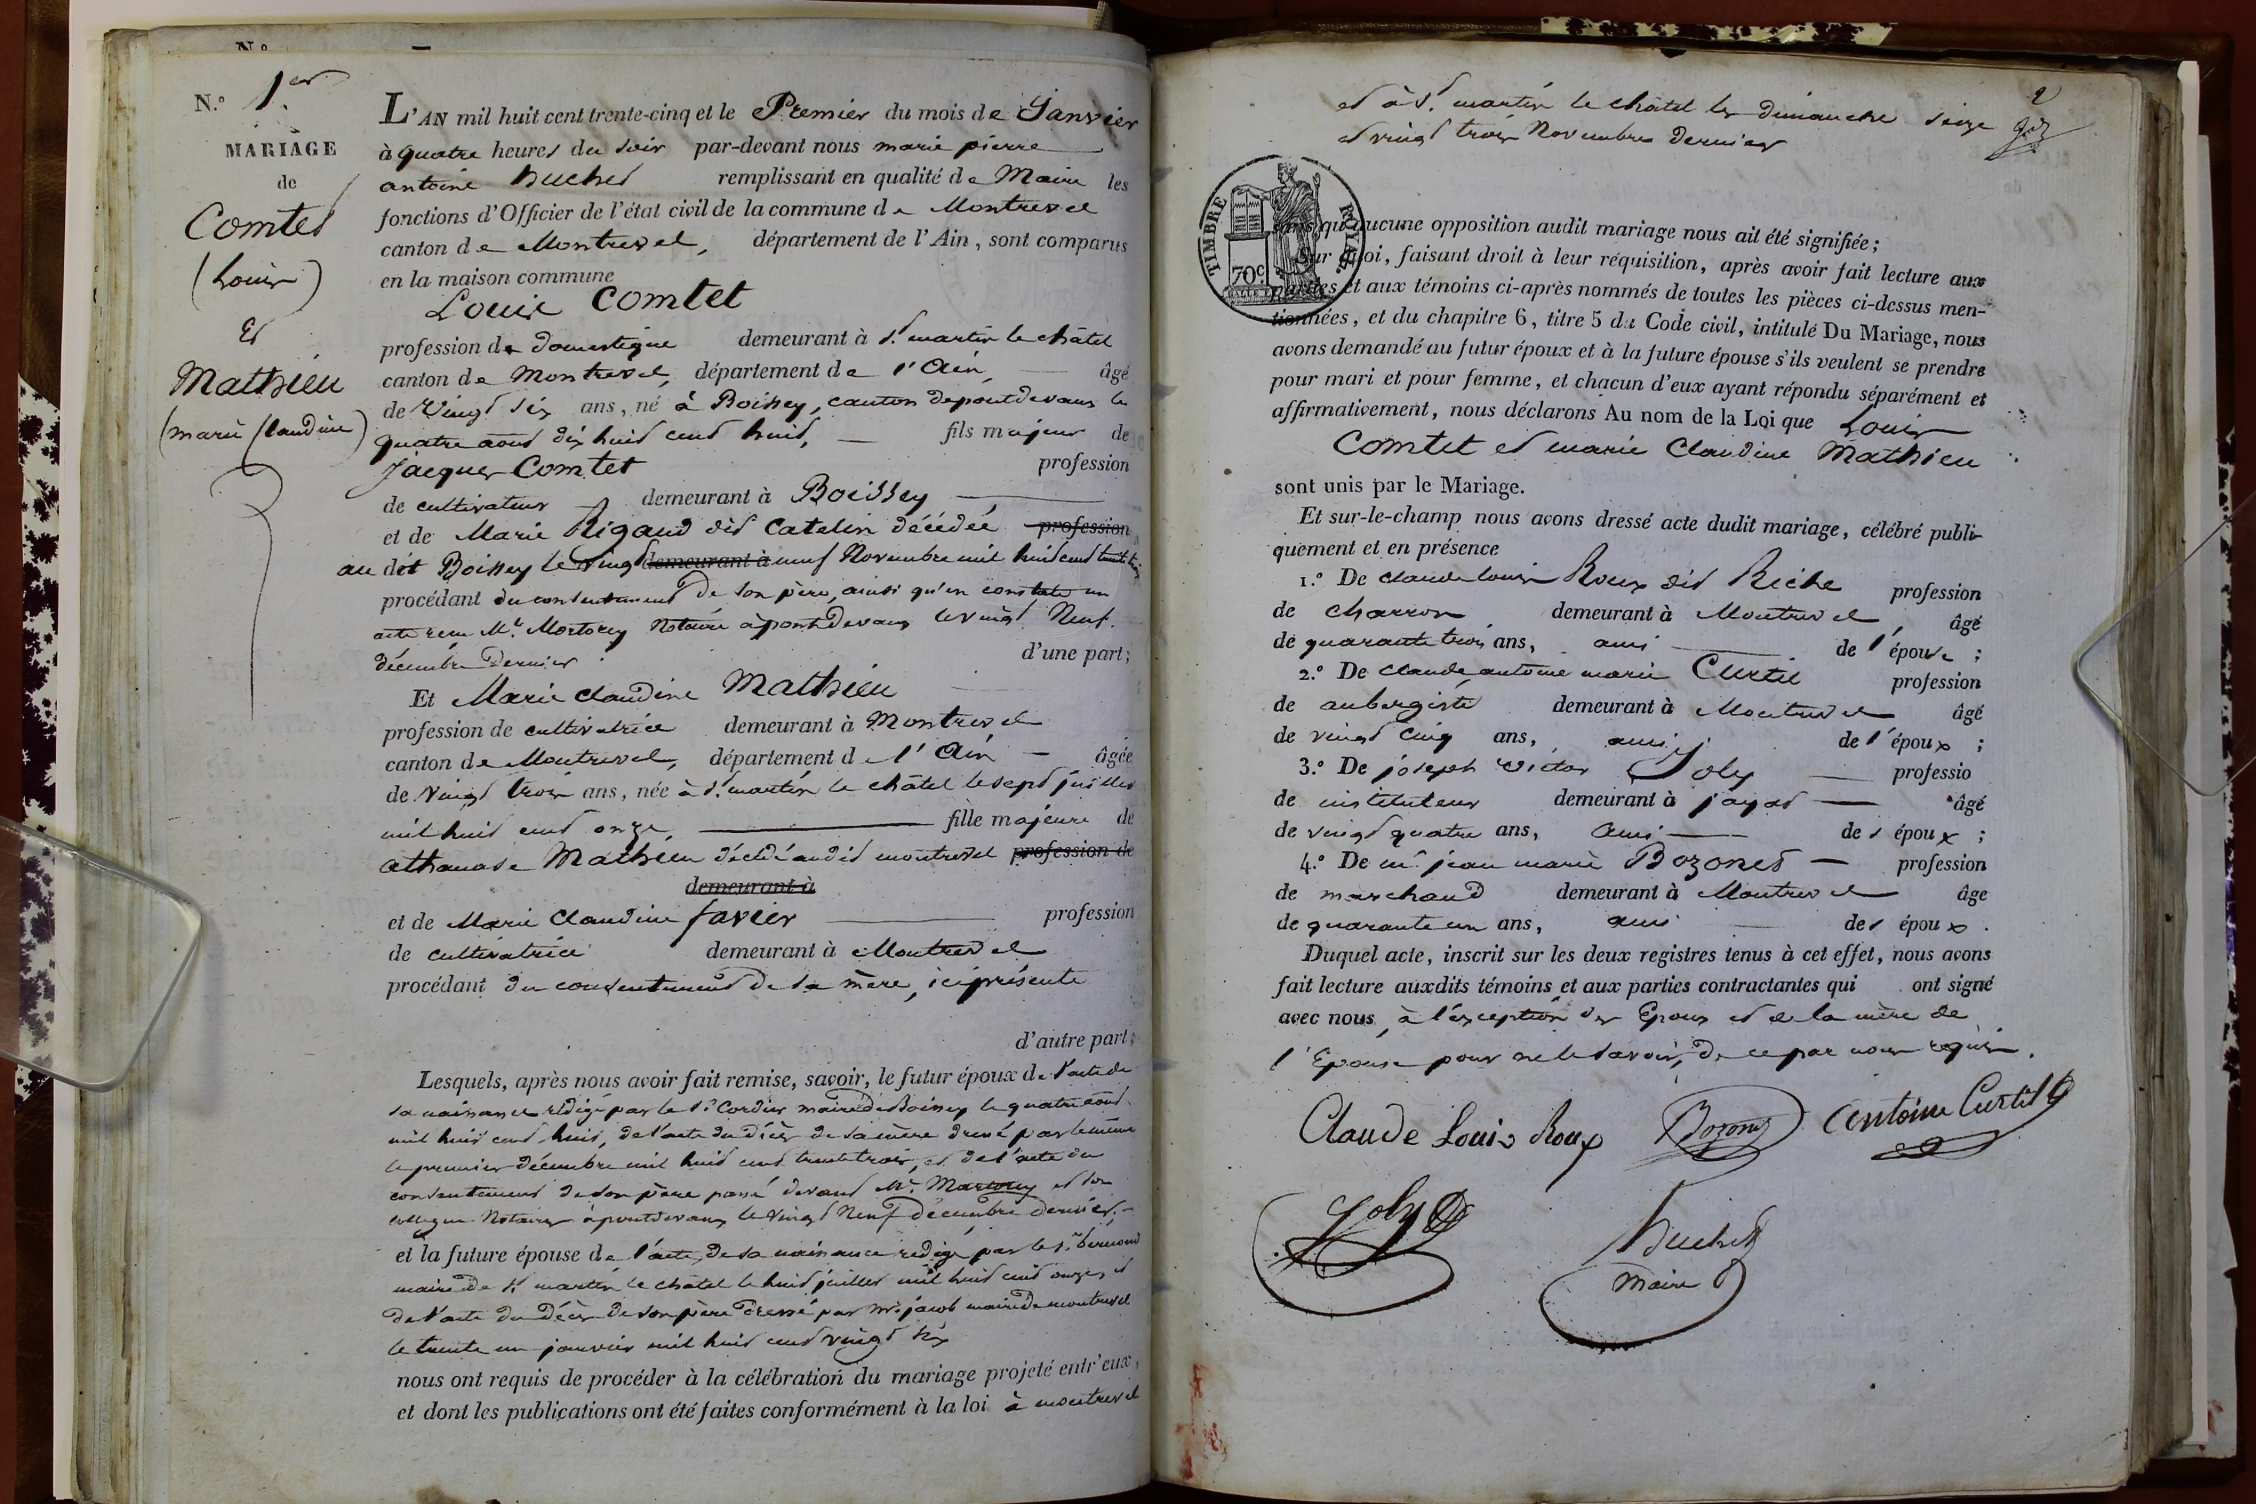 N.º
N.º 1er
MARIAGE
de
Comtet
(Louis)
Et
Mathieu
(marie Claudine)
L'AN mil huit cent trente-cinq et le Premier du mois de Janvier
à quatre heures du soir par-devant nous marie pierre
antoine Huchet remplissant en qualité de Maire les
fonctions d'Officier de l'état civil de la commune de Montrevel
canton de Montrevel, département de l'Ain, sont comparus
en la maison commune
Louis Comtet
profession de domestique demeurant à St. martin le châtel
canton de Montrevel, département de l'Ain, âgé
de vingt six ans, né à Boissey, canton de pontdevaux le
quatre aout dix huit cent huit, fils majeur de
Jacques Comtet profession
de cultivateur demeurant à Boissey
et de Marie Rigaud dit Catelin décédée profession
au dit Boissey le vingt demeurant à neuf Novembre mil huit cent trente trois
procédant du consentement de son père, ainsi qu'en constate un
acte reçu Me. Mortorey Notaire à pontdevaux le vingt Neuf
décembre Dernier d'une part;
Et Marie Claudine Mathieu
profession de cultivatrice demeurant à Montrevel
canton de Montrevel, département de l'Ain âgée
de vingt trois ans, née à St. martin le châtel le sept juillet
mil huit cent onze, fille majeure de
athanase Mathieu décédé audit montrevel profession de
demeurant à
et de Marie Claudine favier profession
de cultivatrice demeurant à Montrevel
procédant du consentement de sa mère, ici présente
d'autre part;
Lesquels, après nous avoir fait remise, savoir, le futur époux de l'acte de
sa naissance rédigé par le Sr. Cordier maire de Boissey le quatre aout
mil huit cent huit, de l'acte du décès de sa mère dressé par le même
le premier décembre mil huit cent trente trois, et de l'acte du
consentement de son père passé devant Me. Mortorey et son
collègue Notaires à pontdevaux le vingt Neuf décembre dernier.
et la future épouse de l'acte de sa naissance rédigé par le Sr.
maire de St. martin le châtel le huit juillet mil huit cent onze, et
de l'acte du décès de son père dressé par Mr. jacob maire de montrevel
le trente un janvier mil huit cent vingt six
nous ont requis de procéder à la célébration du mariage projeté entr'eux,
et dont les publications ont été faites conformément à la loi à montrevel
2
et à St. martin le châtel les dimanches seize
et vingt trois Novembre dernier
TIMBRE ROYAL
70c
sans qu'aucune opposition audit mariage nous ait été signifiée;
Sur quoi, faisant droit à leur réquisition, après avoir fait lecture aux
parties et aux témoins ci-après nommés de toutes les pièces ci-dessus men-
tionnées, et du chapitre 6, titre 5 du Code civil, intitulé Du Mariage, nous
avons demandé au futur époux et à la future épouse s'ils veulent se prendre
pour mari et pour femme, et chacun d'eux ayant répondu séparément et
affirmativement, nous déclarons Au nom de la Loi que Louis
Comtet et marie Claudine Mathieu
sont unis par le Mariage.
Et sur-le-champ nous avons dressé acte dudit mariage, célébré publi-
quement et en présence
1.º De claude louis Roux dit Riche profession
de charron demeurant à Montrevel, âgé
de quarante trois ans, ami de l'épouse;
2.º De claude antoine marie Curtil profession
de aubergiste demeurant à Montrevel âgé
de vingt cinq ans, ami de l'époux;
3.º De joseph Victor Joly professio
de instituteur demeurant à jayat âgé
de vingt quatre ans, ami des époux;
4.º De mr. jean marie Bozonet profession
de marchand demeurant à Montrevel âge
de quarante un ans, ami des époux.
Duquel acte, inscrit sur les deux registres tenus à cet effet, nous avons
fait lecture auxdits témoins et aux parties contractantes qui ont signé
avec nous, à l'éxception des Epoux et de la mère de
l'Epouse pour ne le savoir, de ce par nous requis.
Claude Louis Roux Bozonet antoine Curtil
Joly
Huchet
Maire